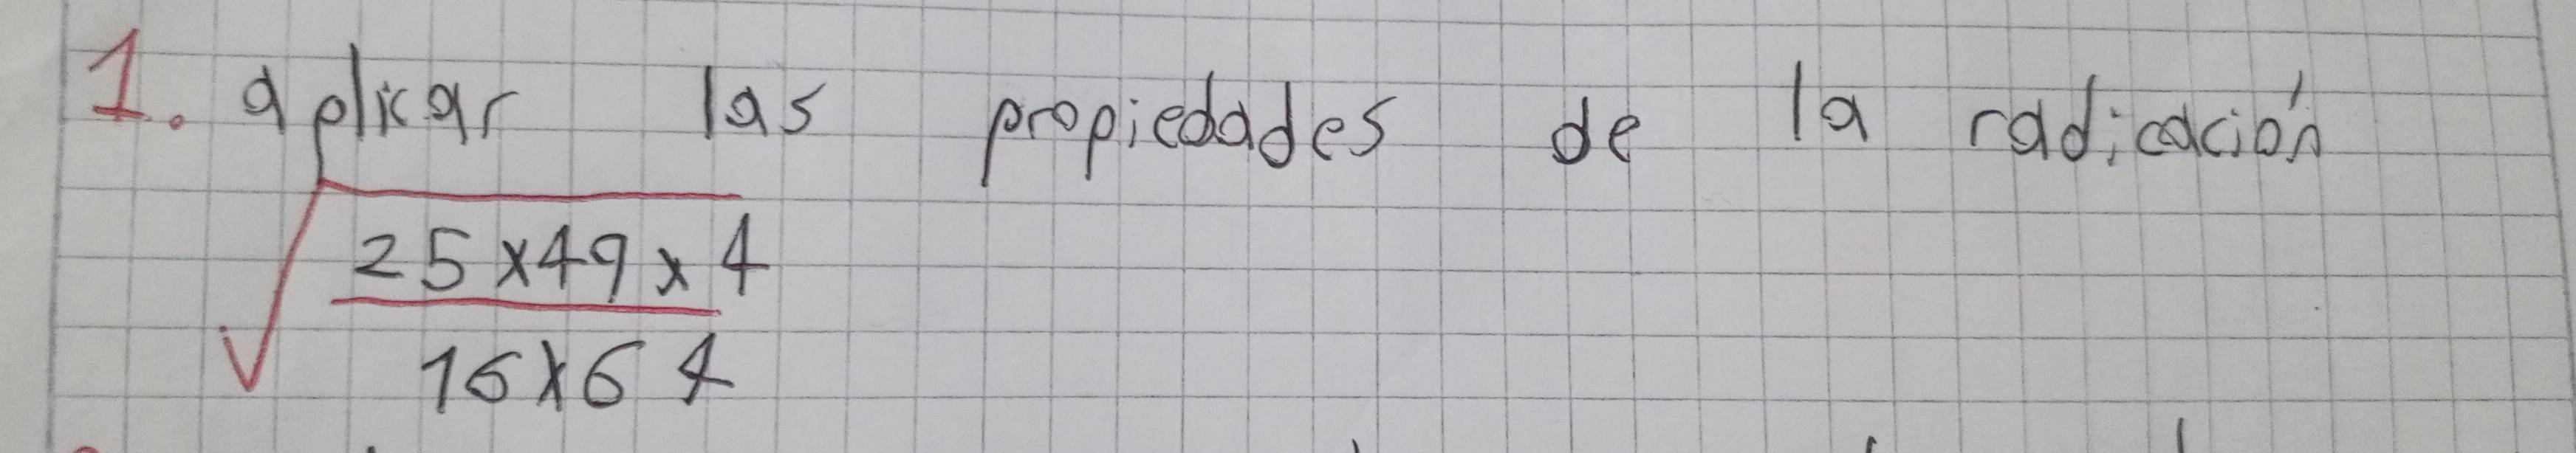 1. aplicar las propiedades de la radicación
√
25x49x4
16x64